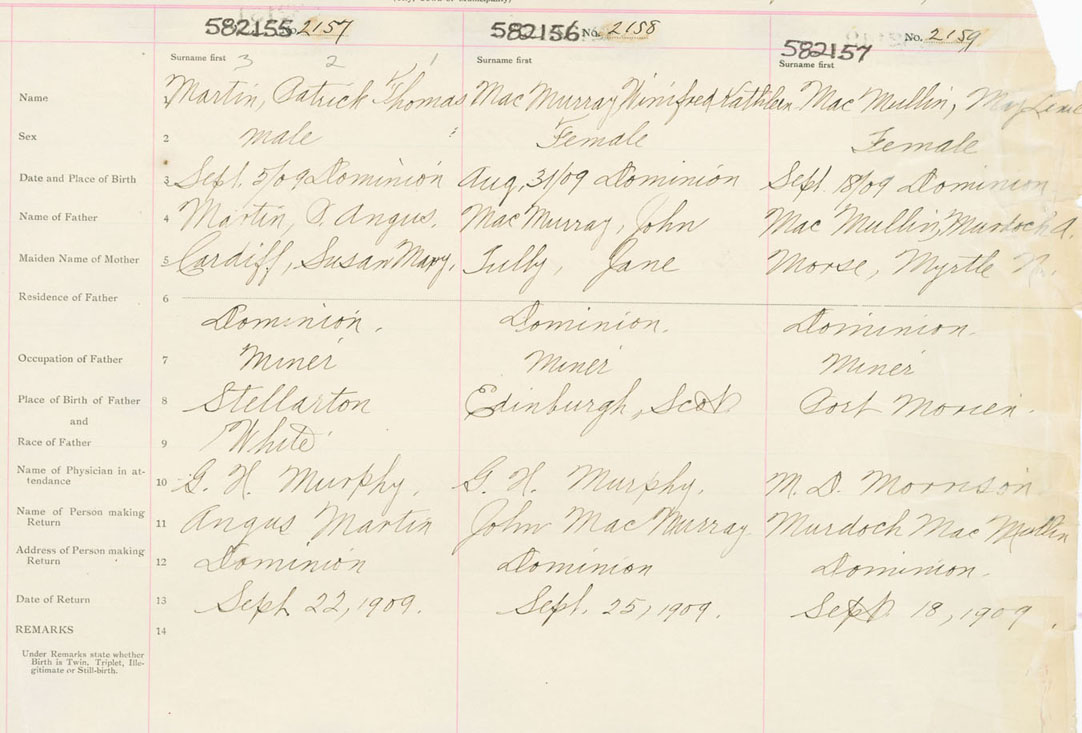 582155 No. 2157 582156 No. 2158 582157 No. 2159
Surname first 3 2 1 Surname first Surname first
Name 1 Martin, Patrick Thomas Mac Murray Winifred Kathleen Mac Mullin, May
Sex 2 male Female Female
Date and Place of Birth 3 Sept. 5/09 Dominion Aug. 31/09 Dominion Sept. 18/09 Dominion
Name of Father 4 Martin, P. Angus. Mac Murray, John Mac Mullin, Murdoch A.
Maiden Name of Mother 5 Cardiff, Susan Mary. Tully, Jane Morse, Myrtle
Residence of Father 6
Dominion. Dominion. Dominion.
Occupation of Father 7 Miner Miner Miner
Place of Birth of Father 8 Stellarton Edinburgh, Scot Port Morien.
and
Race of Father 9 White
Name of Physician in at-
tendance 10 G. H. Murphy. G. H. Murphy. M. D. Morrison
Name of Person making
Return 11 Angus Martin John Mac Murray Murdoch Mac Mullin
Address of Person making
Return 12 Dominion Dominion Dominion.
Date of Return 13 Sept 22, 1909. Sept. 25, 1909. Sept 18, 1909.
REMARKS 14
Under Remarks state whether
Birth is Twin, Triplet, Ille-
gitimate or Still-birth.